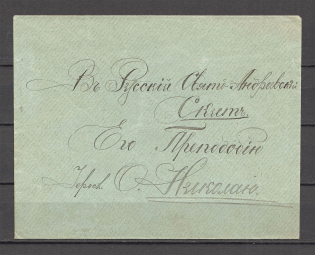 Въ Русскій Свято-Андреевскій
Скитъ
Его Преподобію
Іерос. О. Николаю.